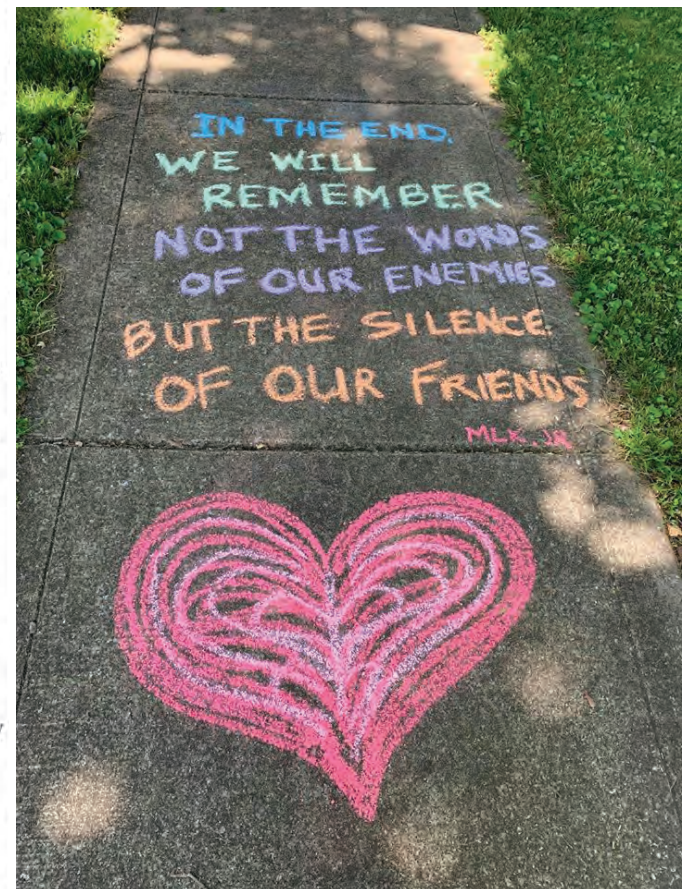 IN THE END,
WE WILL
REMEMBER
NOT THE WORDS
OF OUR ENEMIES
BUT THE SILENCE
OF OUR FRIENDS
MLK. JR